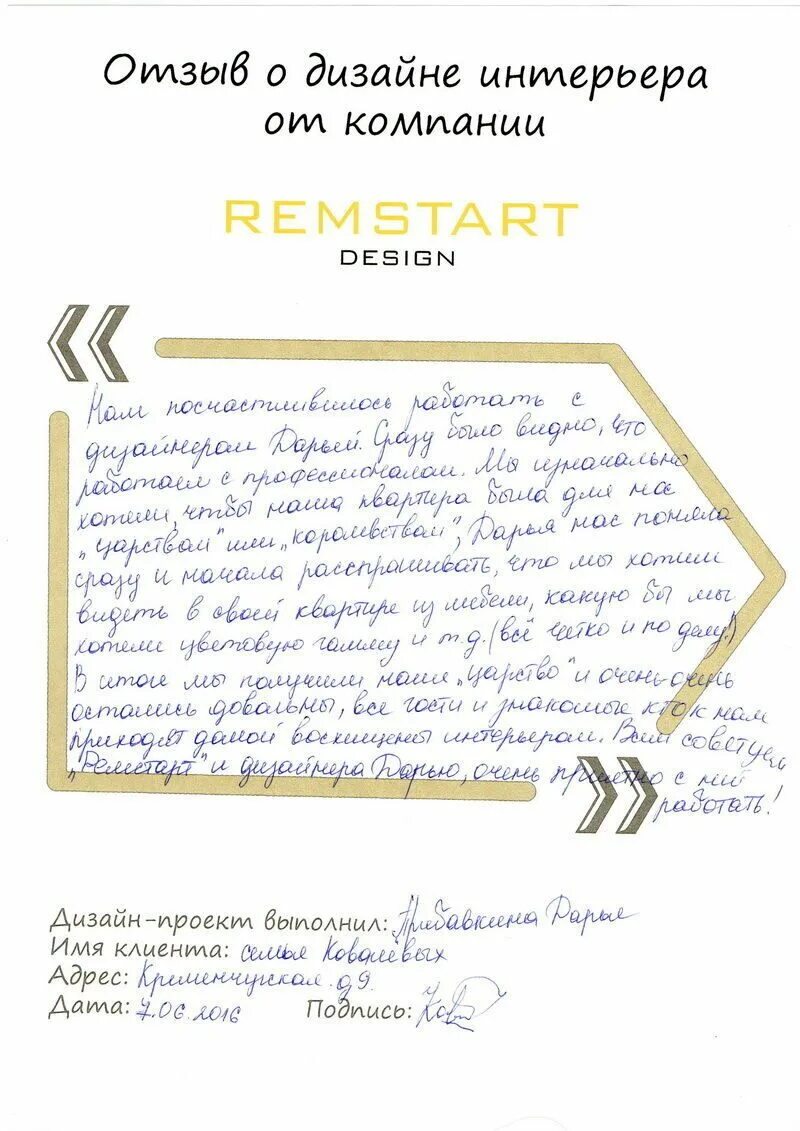 Отзыв о дизайне интерьера
от компании
REMSTART
DESIGN
Нам посчастливилось работать с
дизайнером Дарьей. Сразу было видно, что
работаем с профессионалом. Мы изначально
хотели, чтобы наша квартира была для нас
„царством" или „королевством", Дарья нас поняла
сразу и начала расспрашивать, что мы хотим
видеть в своей квартире из мебели, какую бы мы
хотели цветовую гамму и т.д. (всё четко и по делу!)
В итоге мы получили наше „царство" и очень-очень
остались довольны, все гости и знакомые кто к нам
приходят домой восхищены интерьером. Всем советуем
„Ремстарт" и дизайнера Дарью, очень приятно с ней
работать!
Дизайн-проект выполнил: Прибавкина Дарья
Имя клиента: семья Ковалёвых
Адрес: Кременчугская д9
Дата: 7.06.2016 Подпись: